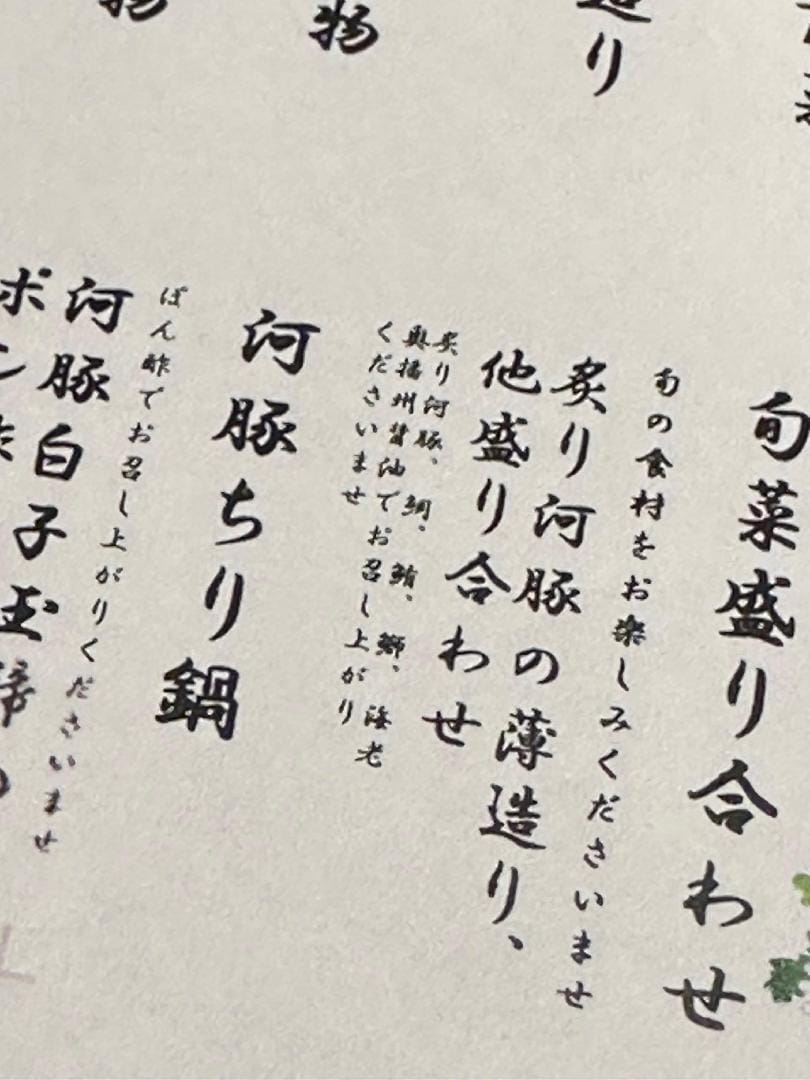 造り
物
物
旬菜盛り合わせ
旬の食材をお楽しみくださいませ
炙り河豚の薄造り、
他盛り合わせ
炙り河豚、鯛、鮪、鰤、海老
奥播州醤油でお召し上がり
くださいませ
河豚ちり鍋
ぽん酢でお召し上がりくださいませ
河豚白子玉